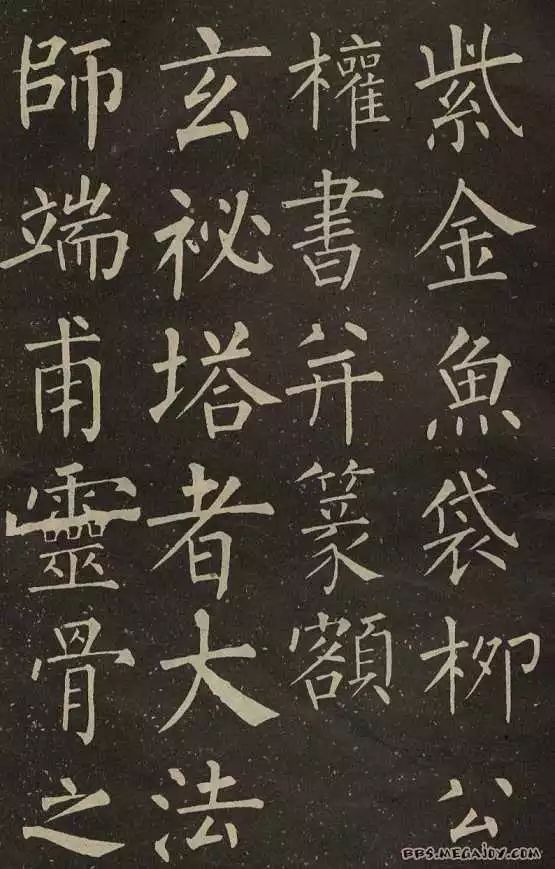 紫金魚袋柳公
權書并篆額
玄祕塔者大法
師端甫靈骨之
BBS.MEGAJOY.COM